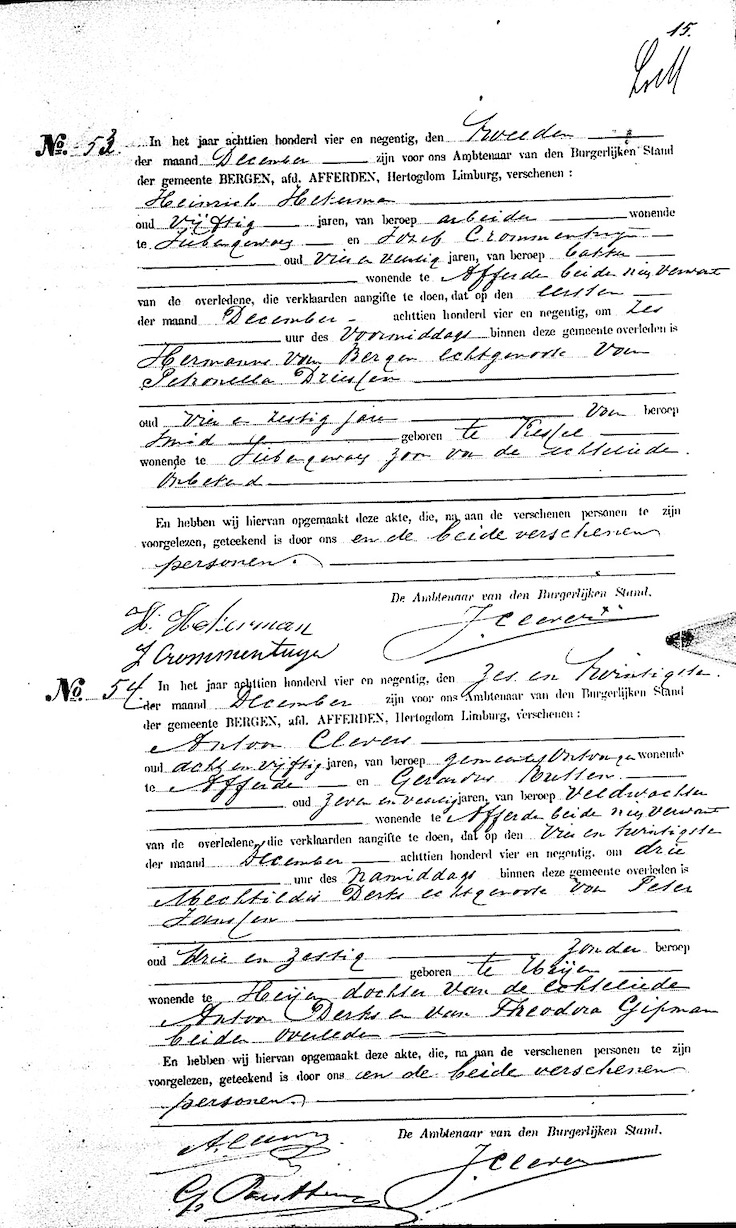 15.
No. 53. In het jaar achttien honderd vier en negentig, den tweeden
der maand December zijn voor ons Ambtenaar van den Burgerlijken Stand
der gemeente BERGEN, afd. AFFERDEN, Hertogdom Limburg, verschenen :
Heinrich Hekerman
oud vijftig jaren, van beroep arbeider wonende
te en Jozef Crommentuyn
oud vier en veertig jaren, van beroep bakker
wonende te Afferde beide niet verwant
van de overledene, die verklaarden aangifte te doen, dat op den eersten
der maand December achttien honderd vier en negentig, om zes
uur des Voormiddags binnen deze gemeente overleden is
Hermanus van Bergen echtgenoote van
Petronella Driessen
oud vier en zestig jare van beroep
Smid geboren te Kessel
wonende te zoon van de echteliede
Onbekend
En hebben wij hiervan opgemaakt deze akte, die, na aan de verschenen personen te zijn
voorgelezen, geteekend is door ons en de beide verschenen
personen.
De Ambtenaar van den Burgerlijken Stand.
H. Hekerman
J Clevers
J Crommentuyn
No. 54 In het jaar achttien honderd vier en negentig, den zes en twintigste
der maand December zijn voor ons Ambtenaar van den Burgerlijken Stand
der gemeente BERGEN, afd. AFFERDEN, Hertogdom Limburg, verschenen :
Antoon Clevers
oud acht en vijftig jaren, van beroep gemeente Ontvanger wonende
te Afferde en Gerardus Rutten
oud zeven en veertig jaren, van beroep Veldwachter
wonende te Afferde beide niet verwant
van de overledene, die verklaarden aangifte te doen, dat op den vier en twintigste
der maand December achttien honderd vier en negentig, om drie
uur des Namiddags binnen deze gemeente overleden is
Mechtildis Derks echtgenoote van Peter
Janssen
oud drie en zestig zonder beroep
geboren te
wonende te Heijen dochter van de echteliede
Antoon Derks en van Theodora Gipman
beiden overleden
En hebben wij hiervan opgemaakt deze akte, die, na aan de verschenen personen te zijn
voorgelezen, geteekend is door ons en de beide verschenen
personen.
De Ambtenaar van den Burgerlijken Stand.
J Clevers